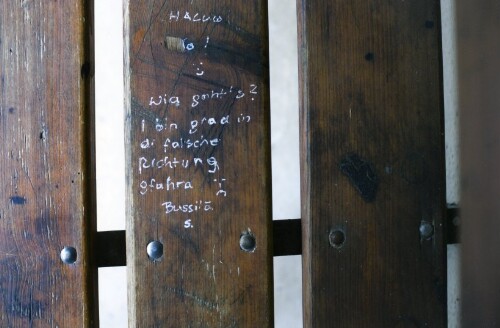 HALUW
!
Wia goht's?
I bin grad in
di falsche
Richtung
gfahra
Bussilä
S.